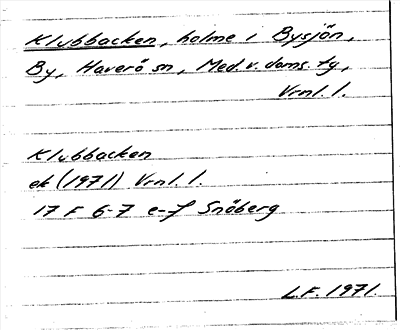 Klubbacken, holme i Bysjön,
By, Haverö sn, Med. v. doms. tg,
Vrnl. l.
Klubbacken
ek (1971) Vrnl. l.
17 F 6-7 e-f Snöberg
L.F. 1971.